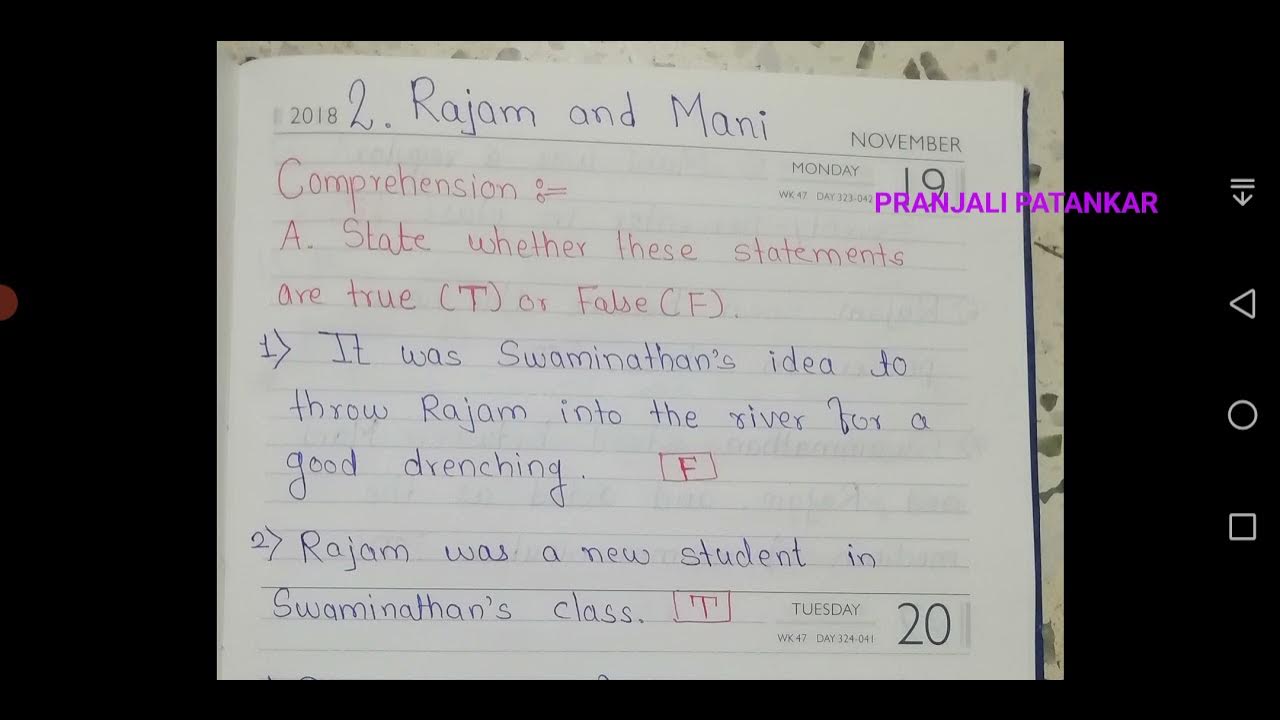 2018 2. Rajam and Mani
NOVEMBER
MONDAY 19
WK 47 DAY 323-042
PRANJALI PATANKAR
Comprehension :=
A. State whether these statements
are true (T) or False (F).
1) It was Swaminathan's idea to
throw Rajam into the river for a
good drenching. F
2) Rajam was a new student in
Swaminathan's class. T
TUESDAY 20
WK 47 DAY 324-041